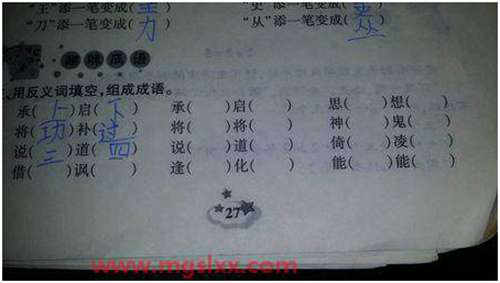 “王”添一笔变成( ) “史”添一笔变成( )
“刀”添一笔变成(力) “从”添一笔变成(丛)
成语
用反义词填空,组成成语。
承(上)启(下) 承( )启( ) 思( )想( )
将(功)补(过) 将( )将( ) 神( )鬼( )
说(三)道(四) 说( )道( ) 倚( )凌( )
借( )讽( ) 逢( )化( ) 能( )能( )
27
www.mgslxx.com